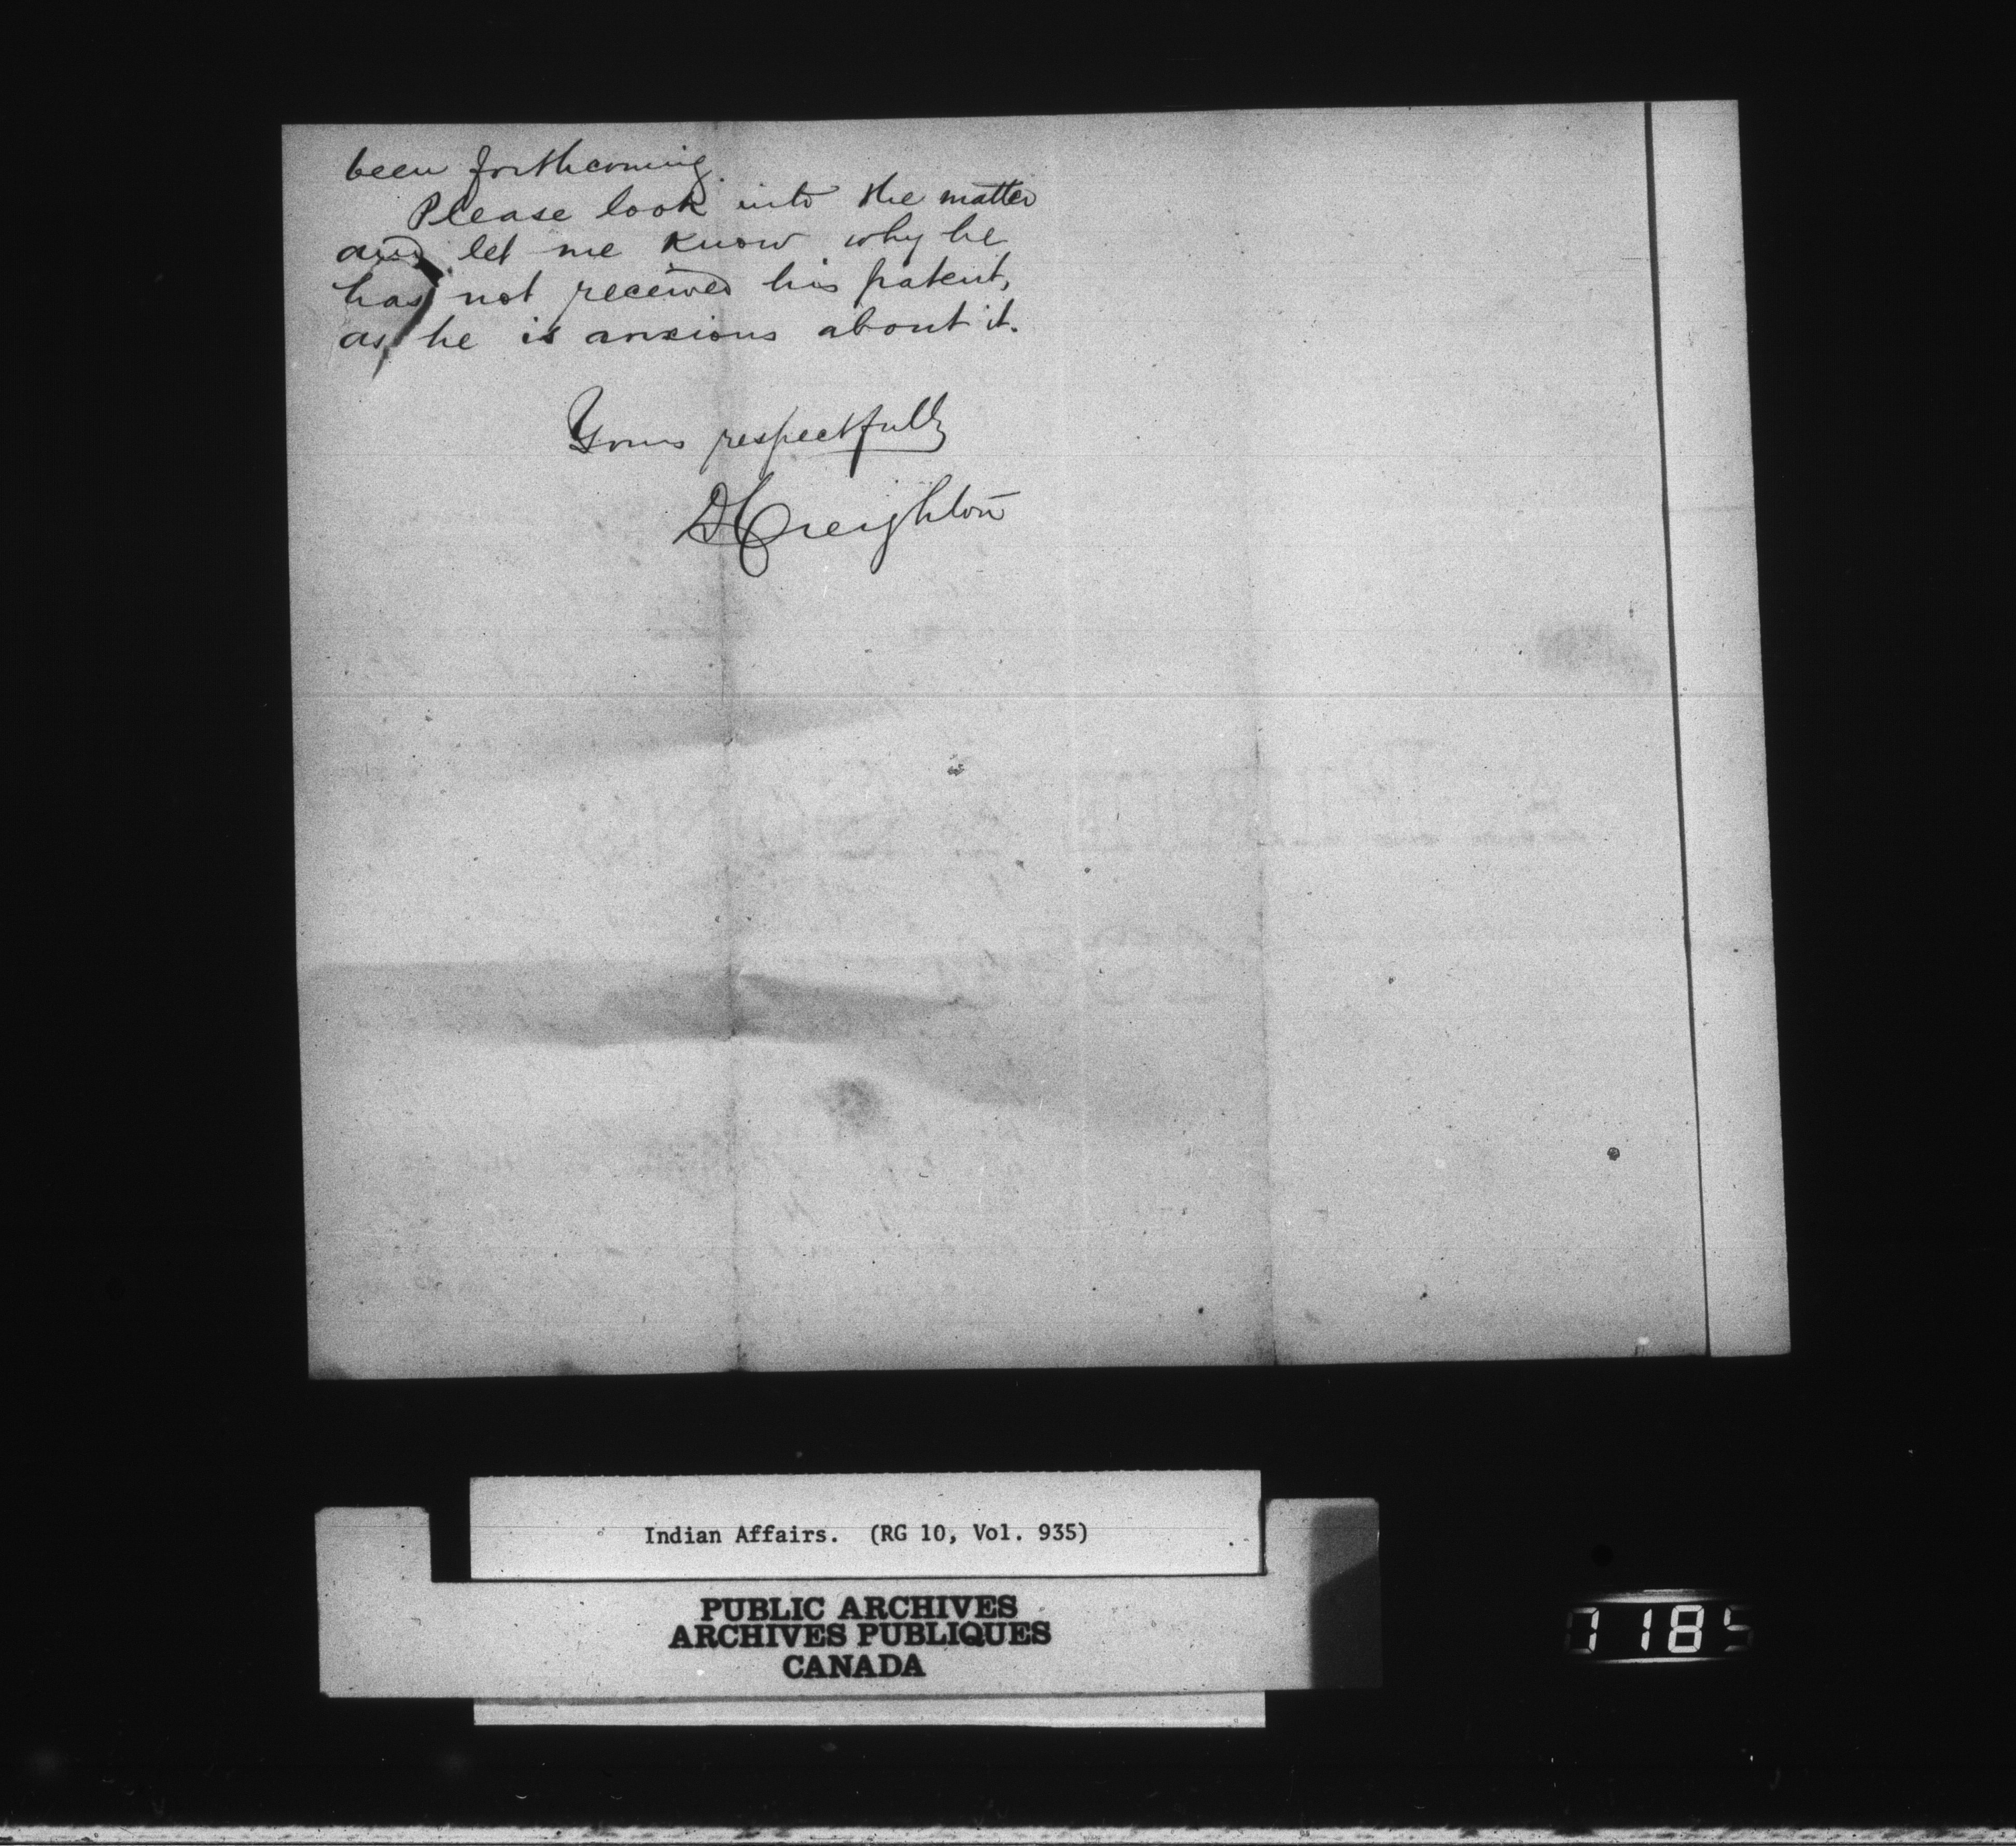 been forthcoming.
Please look into the matter
and let me know why he
has not received his patent,
as he is anxious about it.
Yours respectfully
D Creighton
Indian Affairs. (RG 10, Vol. 935)
PUBLIC ARCHIVES
ARCHIVES PUBLIQUES
CANADA
1185